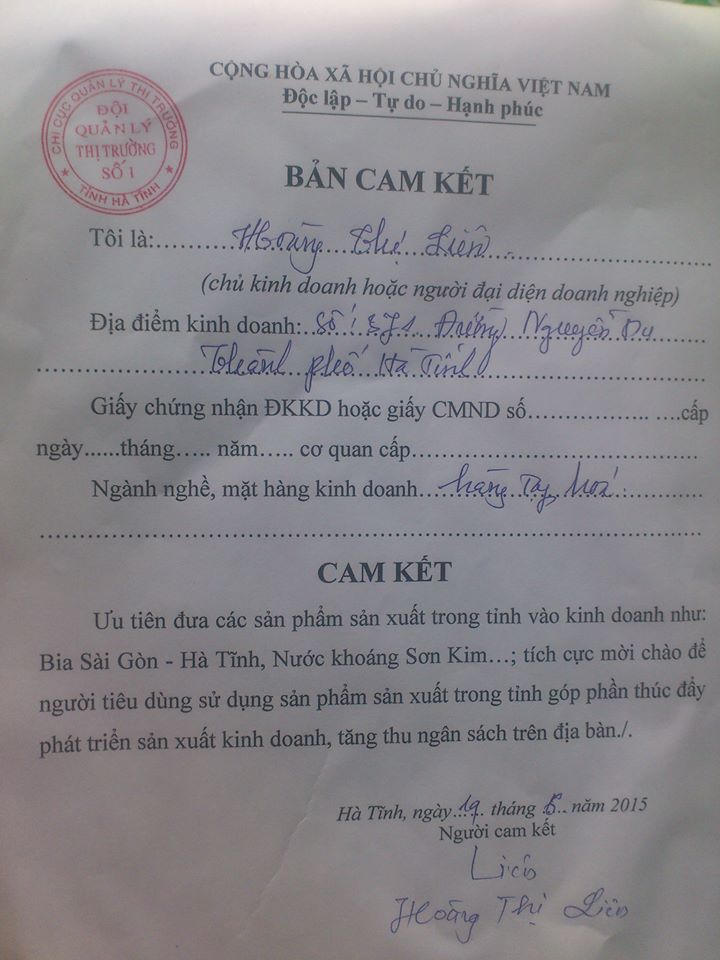 CỘNG HÒA XÃ HỘI CHỦ NGHĨA VIỆT NAM
Độc lập – Tự do – Hạnh phúc
CHI CỤC QUẢN LÝ THỊ TRƯỜNG
ĐỘI
QUẢN LÝ
THỊ TRƯỜNG
SỐ 1
★ TỈNH HÀ TĨNH ★
BẢN CAM KẾT
Tôi là:.........Hoàng Thị Liên..........
(chủ kinh doanh hoặc người đại diện doanh nghiệp)
Địa điểm kinh doanh: Số Đường Nguyễn Du
Thành phố Hà Tĩnh
Giấy chứng nhận ĐKKD hoặc giấy CMND số.................. ....cấp
ngày......tháng..... năm..... cơ quan cấp.......................................
Ngành nghề, mặt hàng kinh doanh....hàng Tạp hoá............
CAM KẾT
Ưu tiên đưa các sản phẩm sản xuất trong tỉnh vào kinh doanh như:
Bia Sài Gòn - Hà Tĩnh, Nước khoáng Sơn Kim…; tích cực mời chào để
người tiêu dùng sử dụng sản phẩm sản xuất trong tỉnh góp phần thúc đẩy
phát triển sản xuất kinh doanh, tăng thu ngân sách trên địa bàn./.
Hà Tĩnh, ngày..19. tháng .5.. năm 2015
Người cam kết
Liên
Hoàng Thị Liên